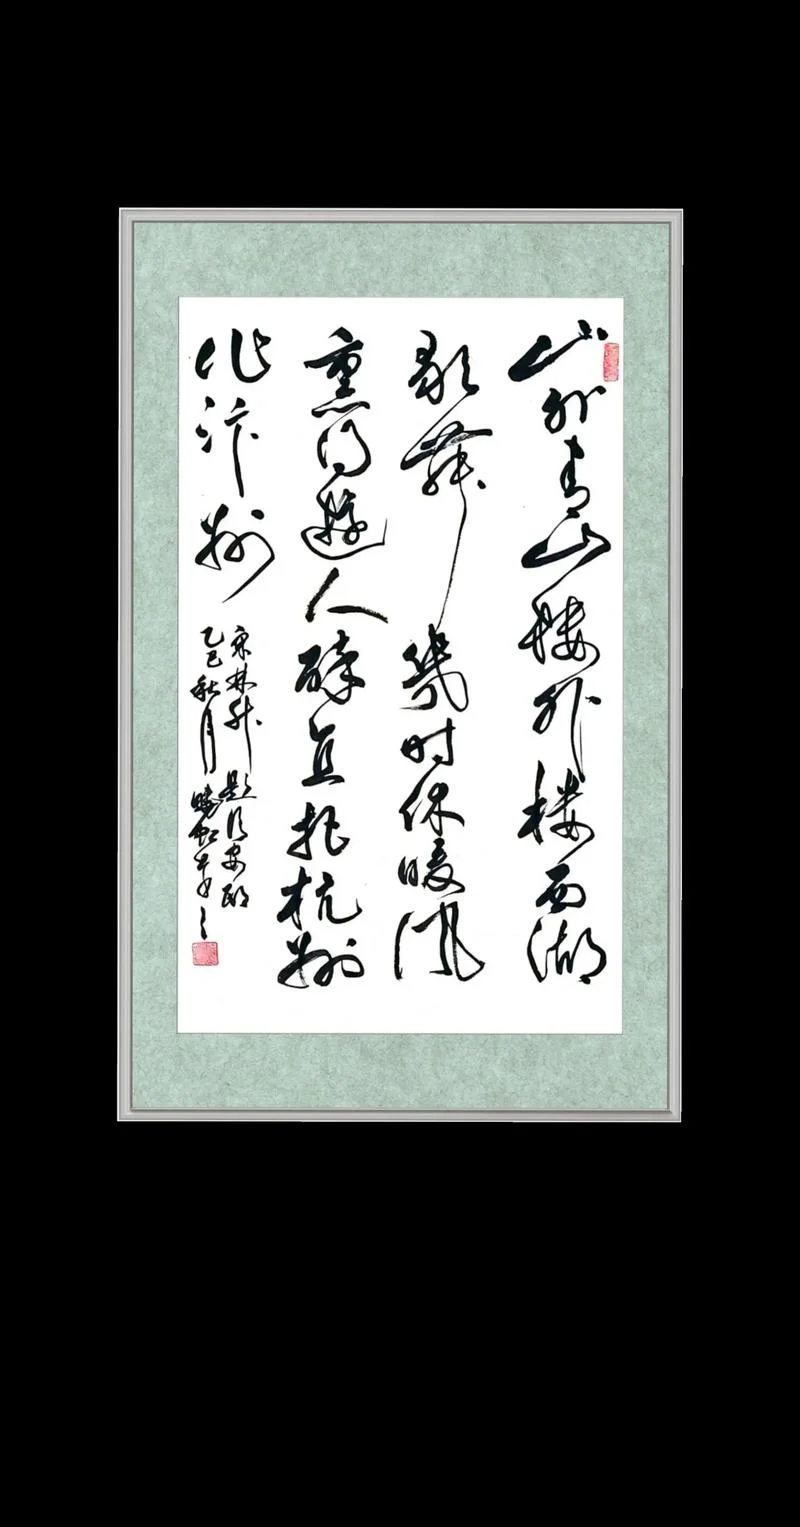 山外青山楼外楼西湖
歌舞幾时休暖风
熏得遊人醉直把杭州
作汴州
宋林升题临安邸
乙巳秋月